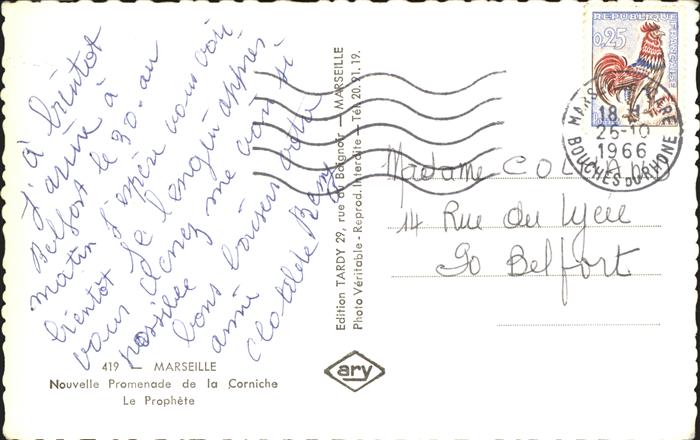 à bientôt
J'arrive à
Belfort le 30 au
matin J'espère vous voir
bientôt Je
vous me voir si
possible
bons baisers votre
amie
Clotilde
419 — MARSEILLE
Nouvelle Promenade de la Corniche
Le Prophète
Edition TARDY 29, rue du Baignoir — MARSEILLE
Photo Véritable - Reprod. Interdite - Tél. 20.91.19.
ary
REPUBLIQUE FRANÇAISE
0,25
MARSEILLE GARE
18 H
25-10
1966
BOUCHES DU RHONE
Madame
14 Rue du Lycée
90 Belfort